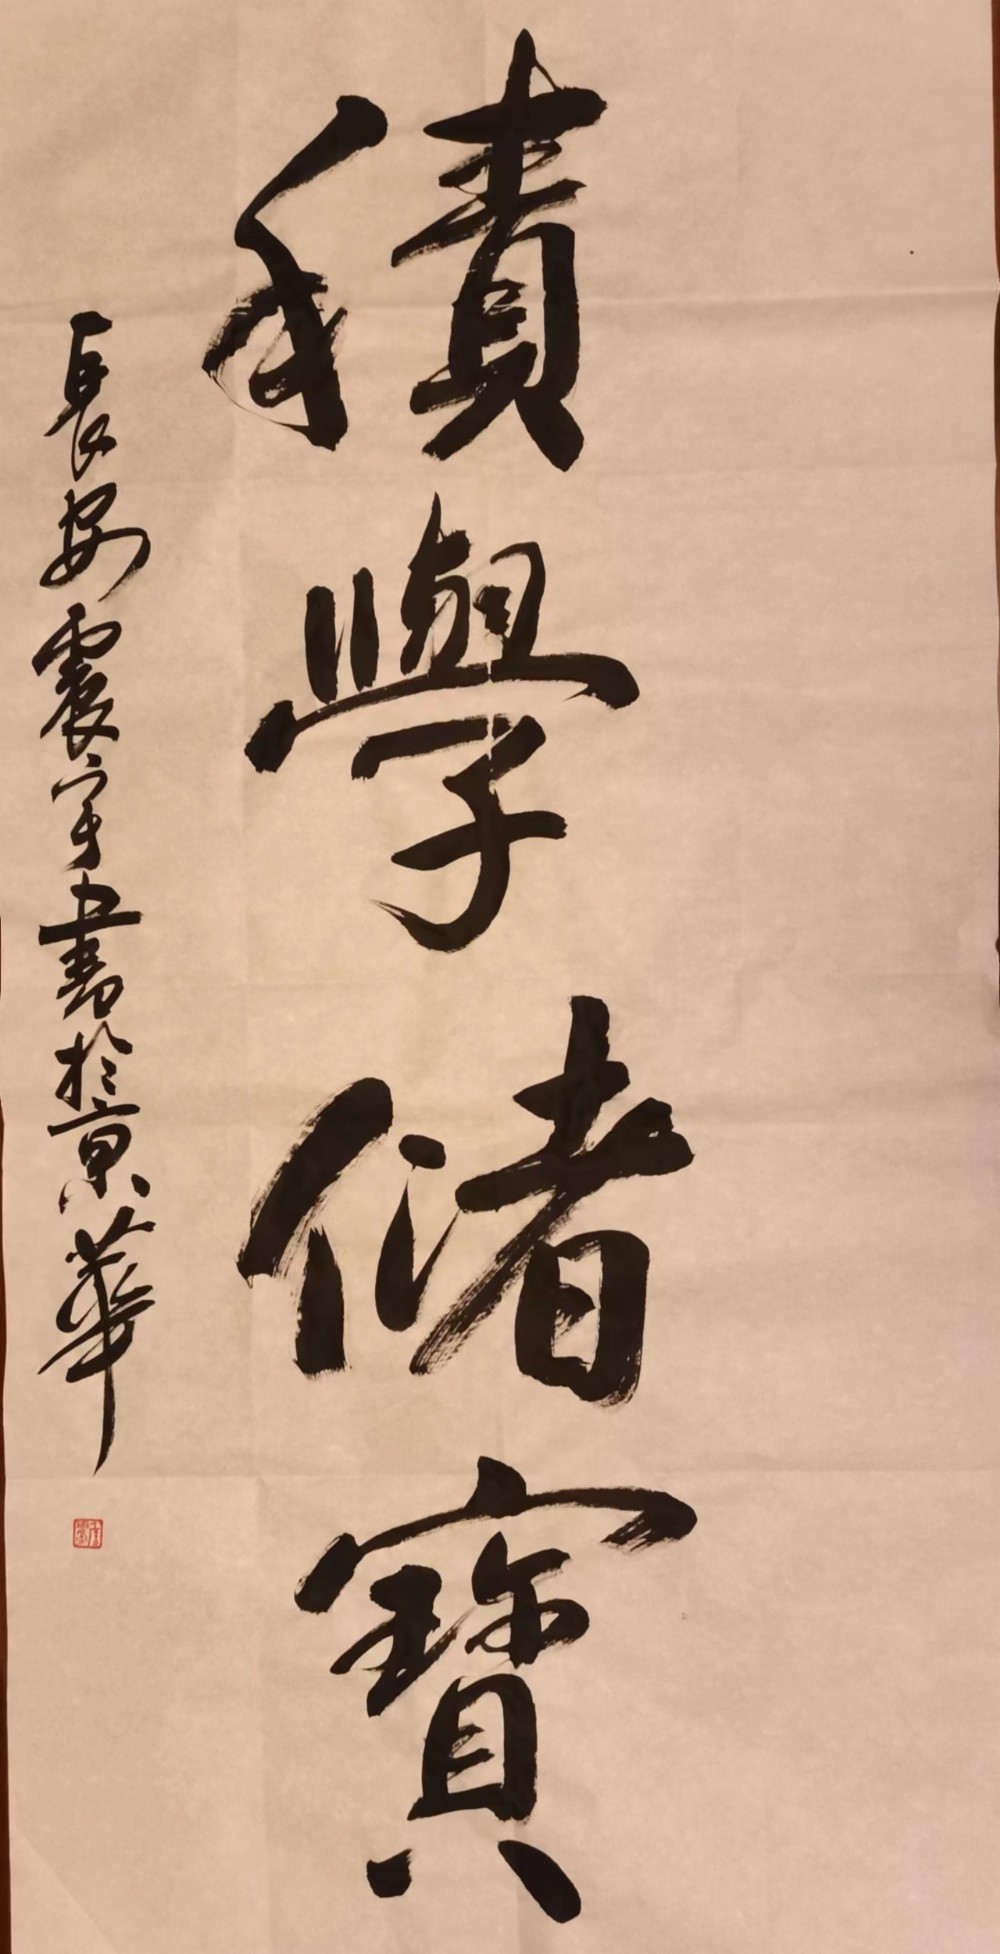 積學儲寶
長安震宇書於京華